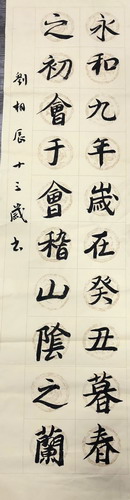 永和九年歲在癸丑暮春
之初會于會稽山陰之蘭
劉相辰十三歲書